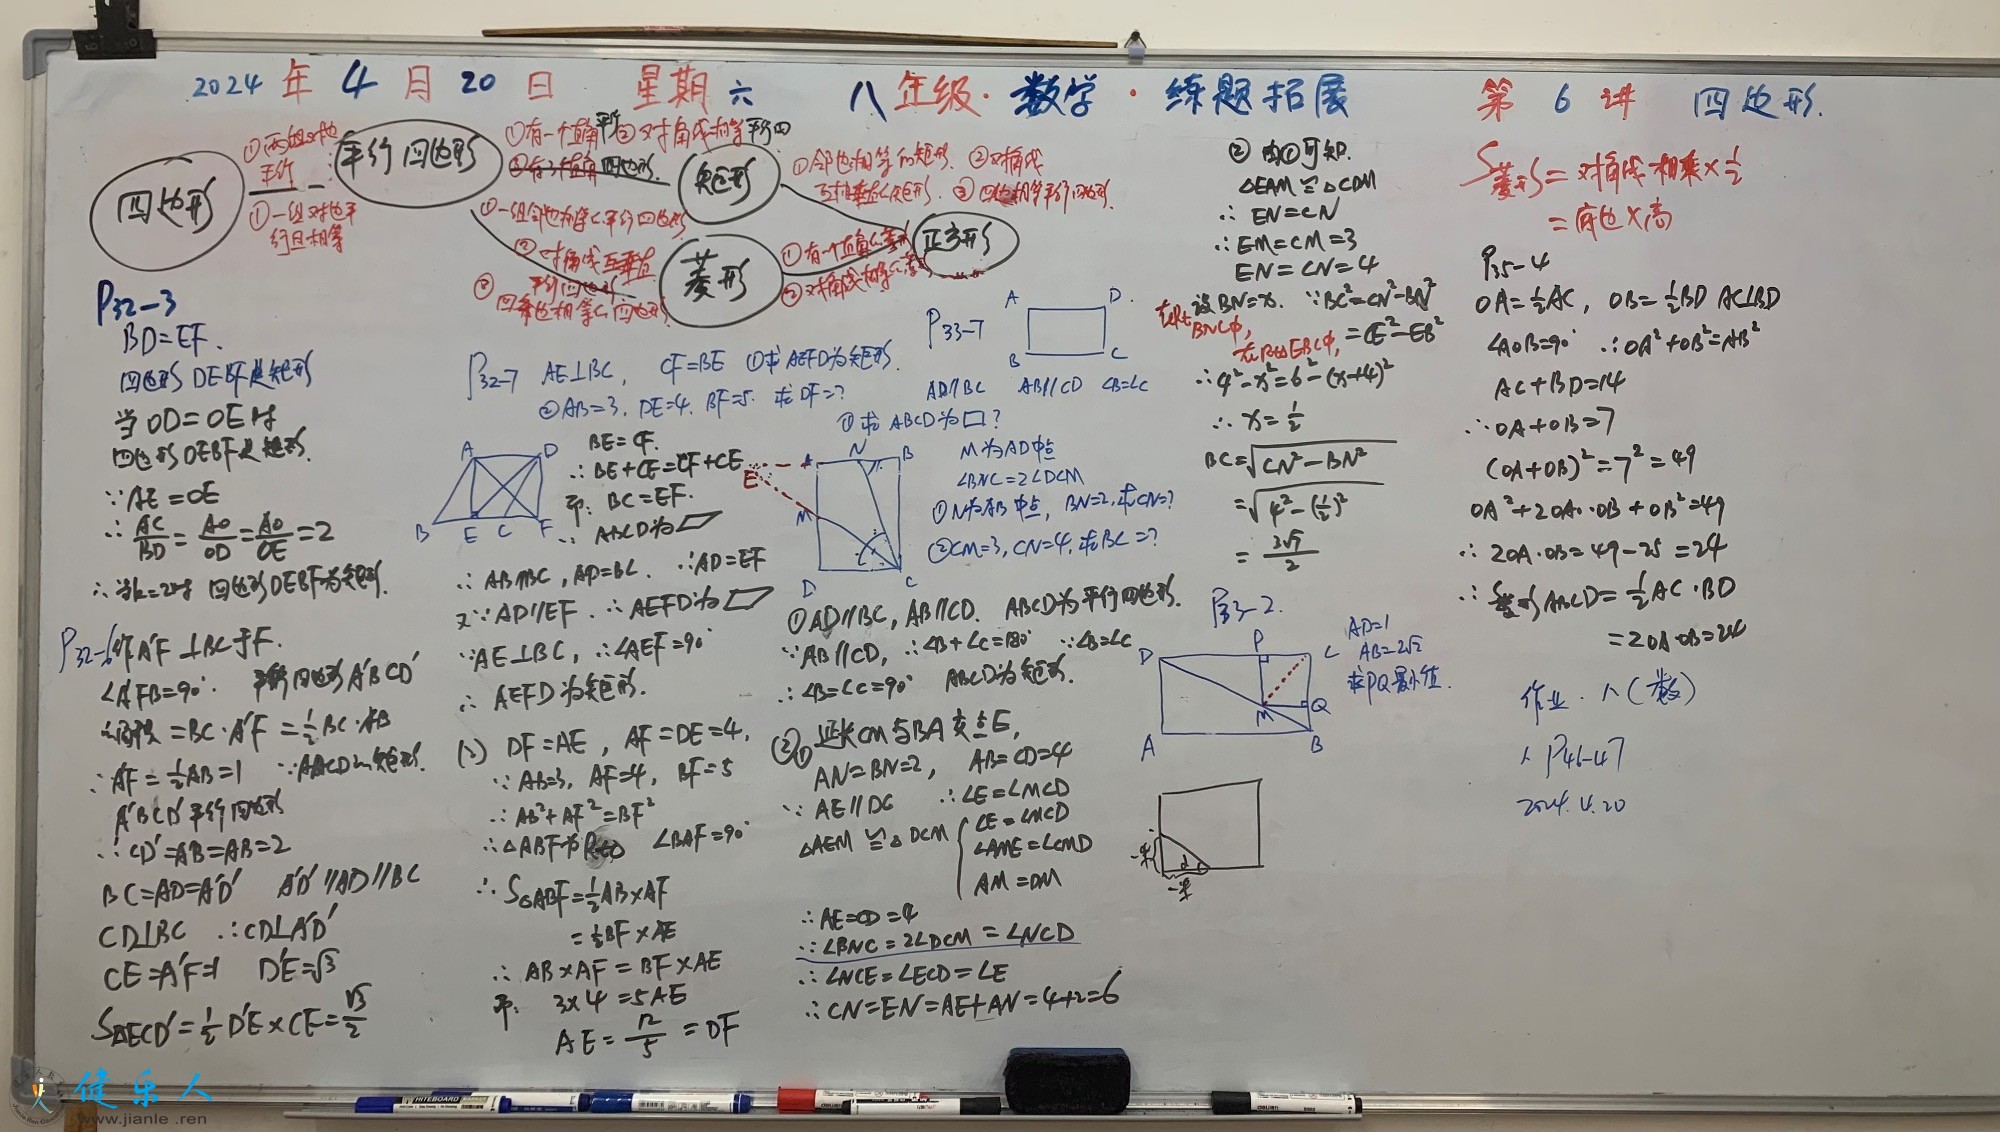 2024年4月20日 星期六 八年级·数学·练题拓展 第6讲 四边形.
四边形
①两组对边
平行
①一组对边平
行且相等
平行四边形
①有一个直角 ②对角线相等 平行四
四边形
矩形
①邻边相等的矩形. ②对角线
①一组邻边相等的平行四边形
②对角线互垂直
平行四边形
菱形
①有一个直角的菱形
②对角线相等的菱形
正方形
P32-3
BD=EF.
四边形DEBF是矩形
当OD=OE时
四边形DEBF是矩形.
∵AE=OE
∴AC/BD=AO/OD=AO/OE=2
∴当k=2时 四边形DEBF为矩形.
P32-6 作A'F⊥BC于F.
∠A'FB=90°. 平行四边形A'BCD'
面积=BC·A'F=1/2BC·AB
∴A'F=1/2AB=1 ∵ABCD为矩形.
A'BCD'平行四边形
∴CD'=A'B=AB=2
BC=AD=A'D' A'D'//AD//BC
CD⊥BC ∴CD⊥A'D'
CE=A'F=1 D'E=√3
S△ECD'=1/2D'E×CE=√3/2
P32-7 AE⊥BC, CF=BE ①求AEFD为矩形.
②AB=3. DE=4. BF=5. 求DF=?
A D
B E C F
BE=CF.
∴BE+CE=CF+CE
即: BC=EF.
∵ABCD为▱
∴AB//BC, AD=BC. ∵AD=EF
又∵AD//EF. ∴AEFD为▱
∵AE⊥BC, ∴∠AEF=90°
∴AEFD为矩形.
(2) DF=AE, AF=DE=4,
∵AB=3, AF=4, BF=5
∴AB²+AF²=BF²
∴△ABF为Rt△ ∠BAF=90°
∴S△ABF=1/2AB×AF
=1/2BF×AE
∴AB×AF=BF×AE
即: 3×4=5AE
AE=12/5=DF
P33-7
A D
B C
AD//BC AB//CD ∠B=∠C
①求ABCD为□?
M为AD中点
∠BNC=2∠DCM
①N为AB中点, BN=2, 求CN=?
②CM=3, CN=4, 求BC=?
E A N B
M
D C
①AD//BC, AB//CD. ABCD为平行四边形.
∵AB//CD, ∴∠B+∠C=180° ∵∠B=∠C
∴∠B=∠C=90° ABCD为矩形.
②① 延长CM与BA交点E,
AN=BN=2, AB=CD=4
∵AE//DC ∴∠E=∠MCD
△AEM≌△DCM { ∠E=∠MCD
∠AME=∠CMD
AM=DM
∴AE=CD=4
∵∠BNC=2∠DCM=∠NCD
∴∠NCE=∠ECD=∠E
∴CN=EN=AE+AN=4+2=6
② 由①可知.
△EAM≌△CDM
∴EN=CN
∴EM=CM=3
EN=CN=4
设BN=x. ∵BC²=CN²-BN²
在Rt△BNC中,
在Rt△EBC中, =CE²-EB²
∴4²-x²=6²-(x+4)²
∴x=1/2
BC=√CN²-BN²
=√4²-(1/2)²
=3√7/2
P33-2.
D P C
M Q
A B
AD=1
AB=2√2
求PQ最小值.
S菱形=对角线相乘×1/2
=底边×高
P35-4
OA=1/2AC, OB=1/2BD AC⊥BD
∠AOB=90° ∴OA²+OB²=AB²
AC+BD=14
∴OA+OB=7
(OA+OB)²=7²=49
OA²+2OA·OB+OB²=49
∴2OA·OB=49-25=24
∴S菱形ABCD=1/2AC·BD
=2OA·OB=24
作业. 八(数)
P46-47
2024.4.20
健乐人
www.jianle.ren